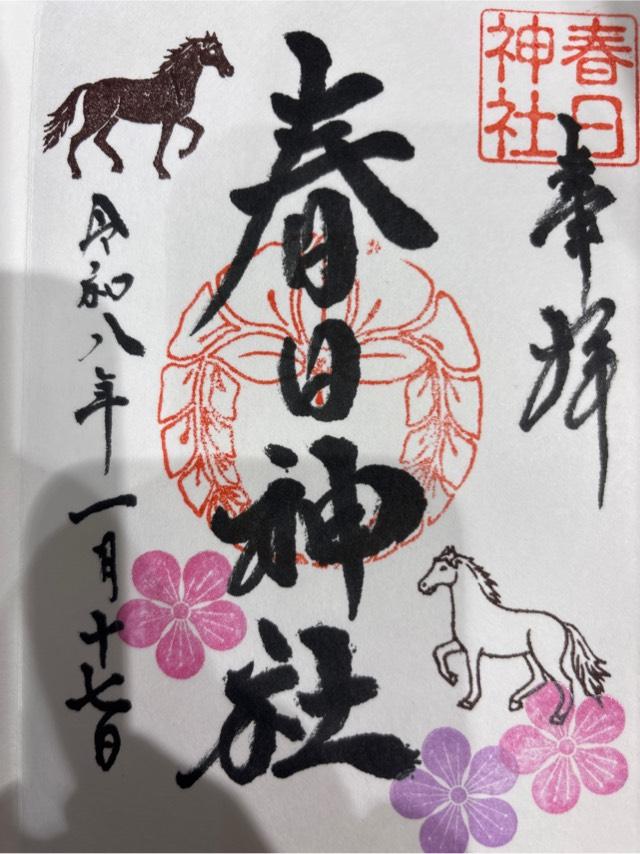 春日神社
奉拝
春日神社
令和八年一月十七日